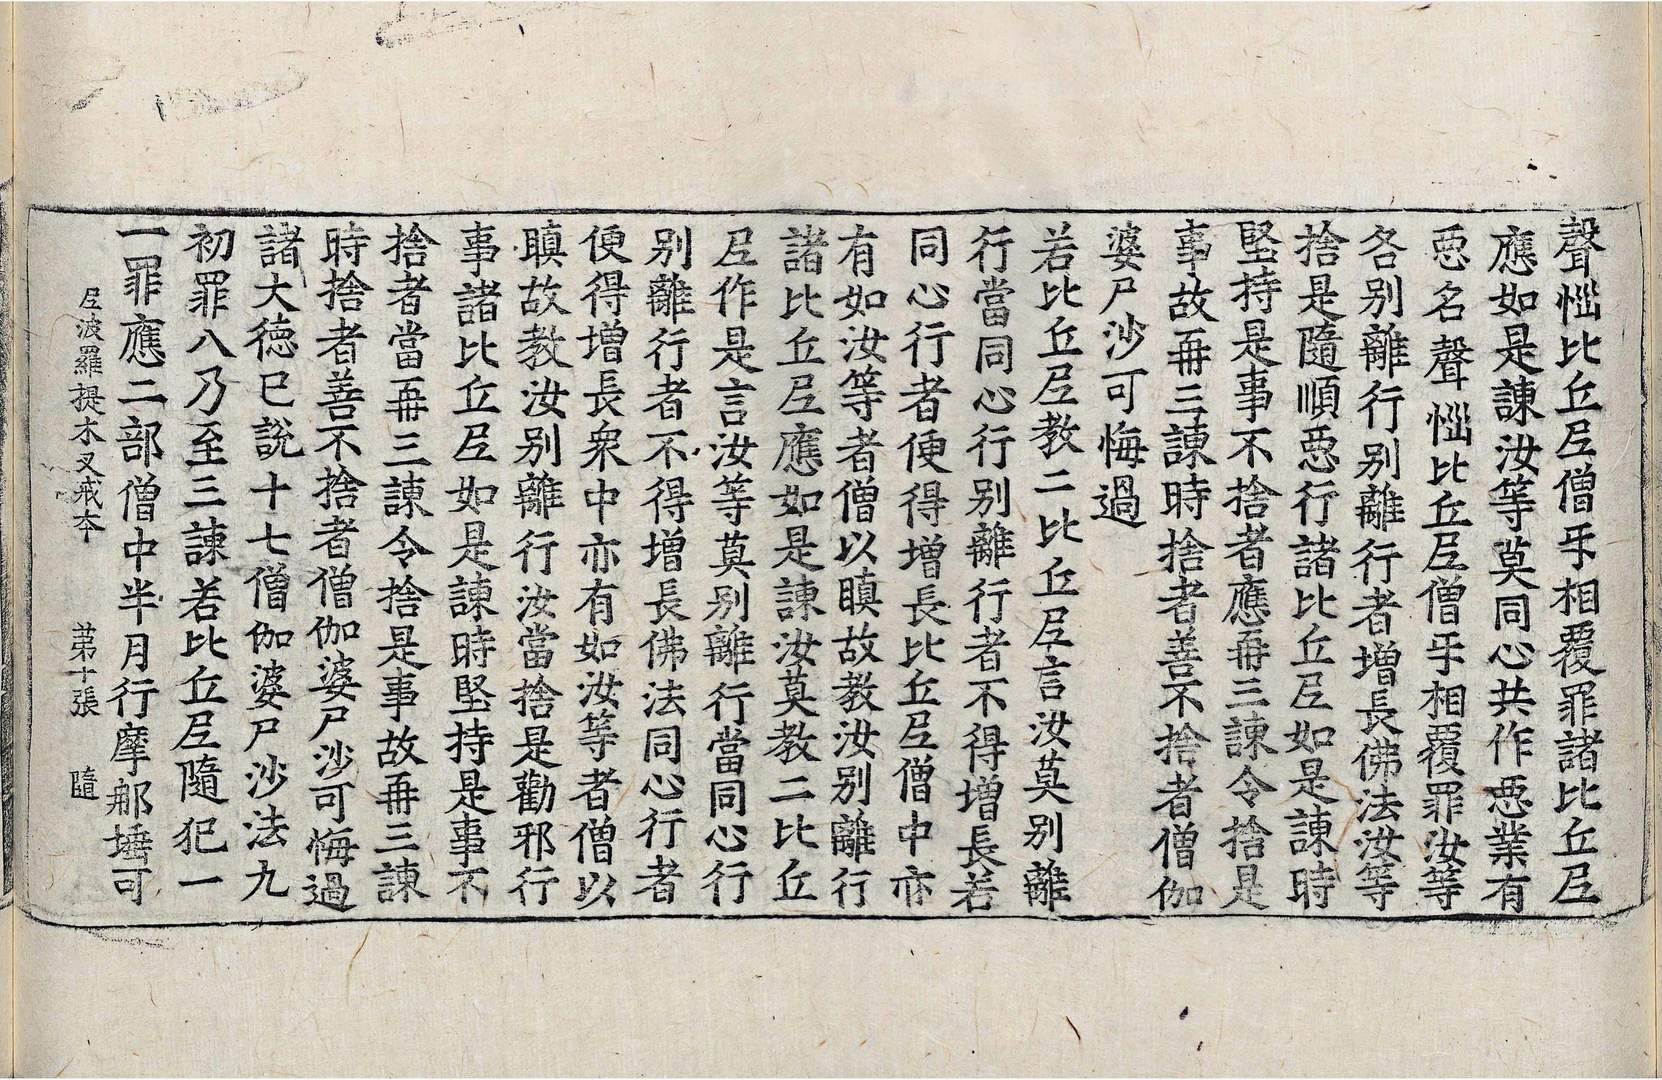 聲惱比丘尼僧乎相覆罪諸比丘尼
應如是諫汝等莫同心共作惡業有
惡名聲惱比丘尼僧乎相覆罪汝等
各別離行別離行者增長佛法汝等
捨是隨順惡行諸比丘尼如是諫時
堅持是事不捨者應再三諫令捨是
事故再三諫時捨者善不捨者僧伽
婆尸沙可悔過
若比丘尼教二比丘尼言汝莫別離
行當同心行別離行者不得增長若
同心行者便得增長比丘尼僧中亦
有如汝等者僧以瞋故教汝別離行
諸比丘尼應如是諫汝莫教二比丘
尼作是言汝等莫別離行當同心行
別離行者不得增長佛法同心行者
便得增長衆中亦有如汝等者僧以
瞋故教汝別離行汝當捨是勸邪行
事諸比丘尼如是諫時堅持是事不
捨者當再三諫令捨是事故再三諫
時捨者善不捨者僧伽婆尸沙可悔過
諸大德已說十七僧伽婆尸沙法九
初罪八乃至三諫若比丘尼隨犯一
一罪應二部僧中半月行摩那埵可
尼波羅提木叉戒本 第十張 隨